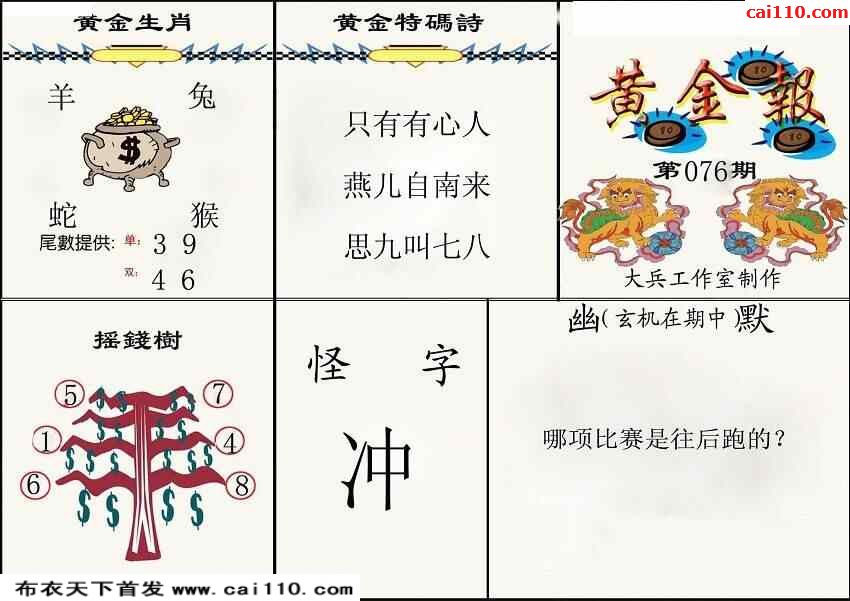 黃金生肖
羊 兔
$
蛇 猴
尾數提供: 单: 3 9
双: 4 6
黃金特碼詩
只有有心人
燕儿自南来
思九叫七八
cai110.com
黃金報
80
10
80
第076期
大兵工作室制作
摇錢樹
⑤ ⑦
① ④
⑥ ⑧
怪 字
冲
幽(玄机在期中)默
哪项比赛是往后跑的?
布衣天下首发 www.cai110.com